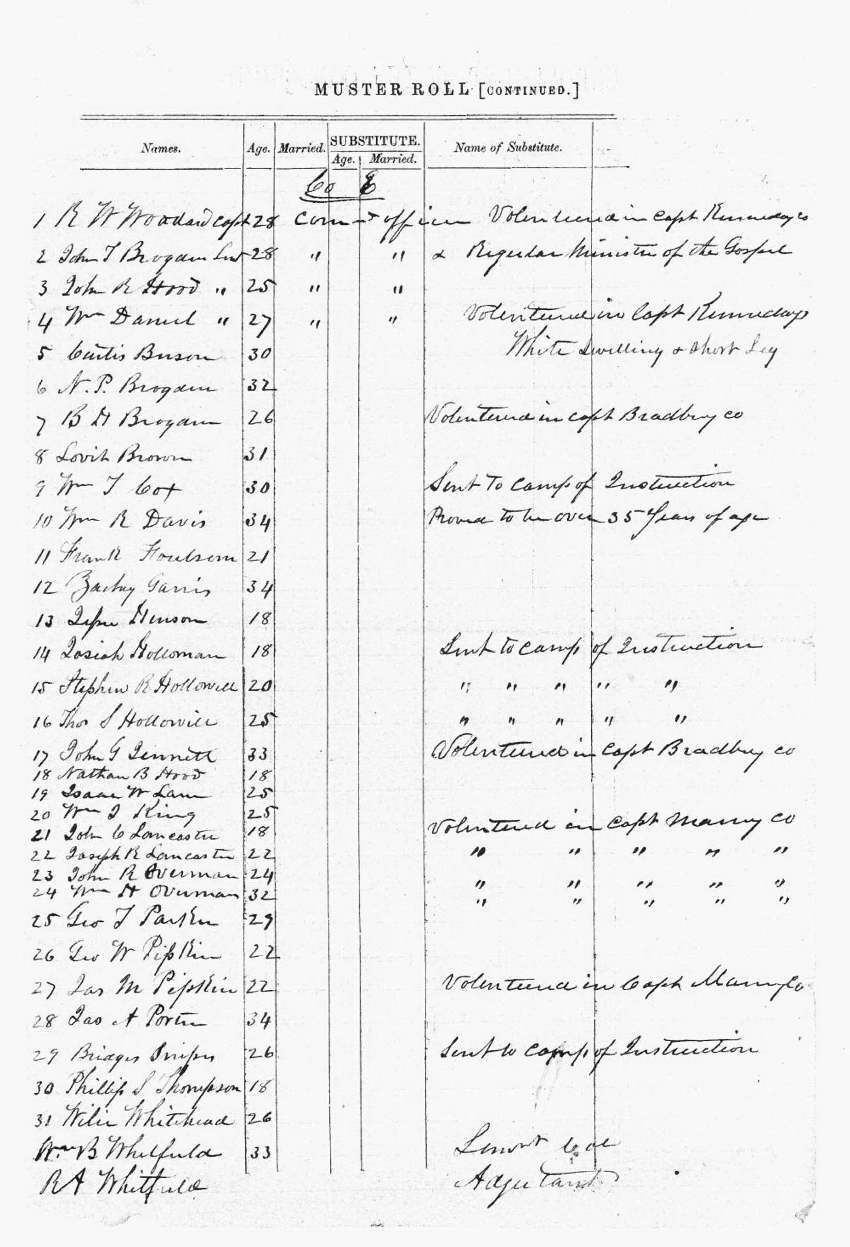 MUSTER ROLL [CONTINUED.]
Names. Age. Married. SUBSTITUTE. Name of Substitute.
Age. Married.
Co E
1 R W Woodard Capt 28 Com officer Volentured in Capt Kennedy co
2 John T Brogden 28 " " & Regular Ministr of the Gospel
3 John R Hood " 25 " "
4 Wm Daniel " 27 " " Volentured in Capt Kennedays
5 Curtis Beson 30 White Swelling & short Leg
6 N. P. Brogden 32
7 B H Brogden 26 Volentured in capt Bradbery co
8 Lovit Brown 31
9 Wm T Cox 30 Sent To Camp of Instruction
10 Wm R Davis 34 Proved to be over 35 Years of age
11 Frank 21
12 Garris 34
13 Henson 18
14 Josiah Holloman 18 Sent to camp of Instruction
15 Stephen R Hollowell 20 " " " " "
16 Thos S Hollowell 25 " " " " "
17 John G Jinnett 33 Volentured in Capt Bradbery co
18 Nathan B Hood 18
19 Isaac W Lane 25
20 Wm J King 25
21 John C Lancaster 18 Volentured in Capt Manny Co
22 Joseph R Lancaster 22 " " " " "
23 John R Overman 24 " " " " "
24 Wm H Overman 32 " " " " "
25 Geo T Parker 29
26 Geo W Pipkin 22
27 Jas M Pipkin 22 Volentured in Capt Manny Co
28 Jas A Porter 34
29 Bridges 26 Sent to camp of Instruction
30 Phillip S Thompson 18
31 Wilie Whitehead 26
Wm B Whitfield 33
R A Whitfield Adjutant